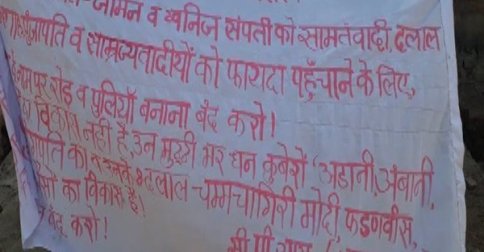 जमीन व खनिज संपती को सामंतवादी, दलाल
पूंजीपति व साम्रज्यवादीयों को फायदा पहुँचाने के लिए,
नाम पर रोड व पुलियाँ बनाना बंद करो।
विकास नहीं है, उन मुठ्ठी भर धन कुबेरो 'अडानी, अंबानी,
का दलाल चम्मचागिरी मोदी, फडणवीस,
का विकास है।
करो!